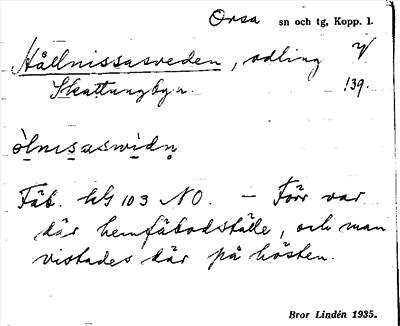 Orsa sn och tg, Kopp. l.
Hållnissasveden, odling V
Skattungbyn. 139.
òlnisaswidn̥
Fäb. 
103 NO. – Förr var
där hemfäbodställe, och man
vistades där på hösten.
Bror Lindén 1935.